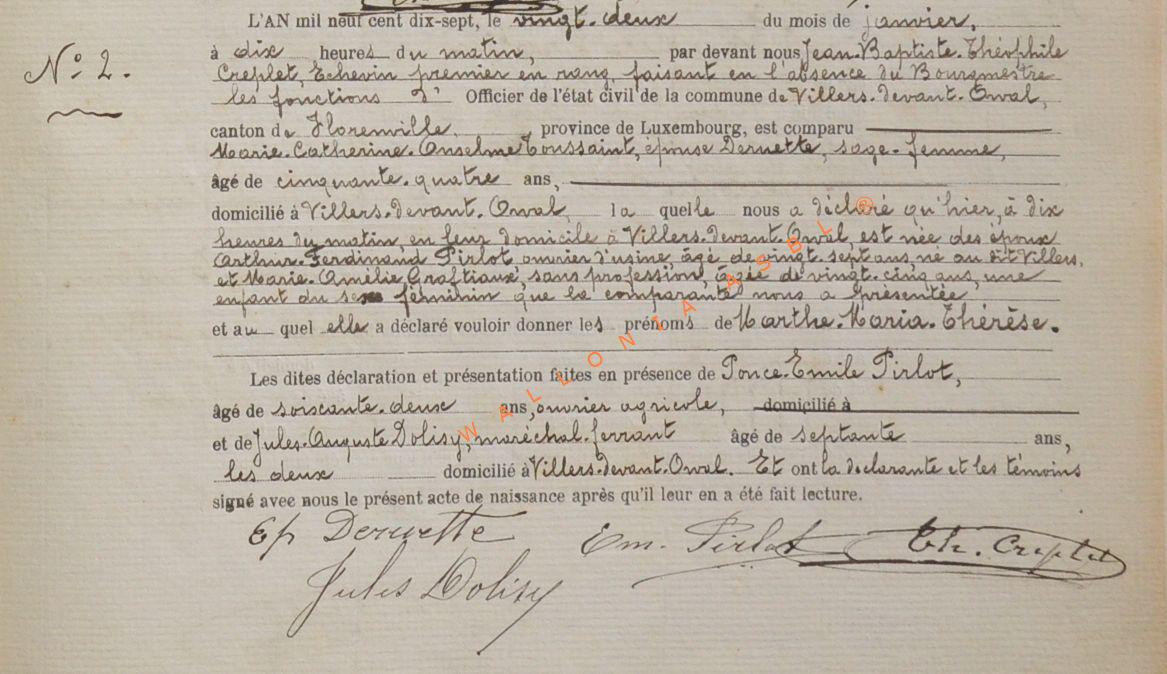 L'AN mil neuf cent dix-sept, le vingt-deux du mois de janvier,
N° 2.
à dix heures du matin, par devant nous Jean-Baptiste-Théophile
Creplet, Echevin premier en rang, faisant en l'absence du Bourgmestre
les fonctions d' Officier de l'état civil de la commune de Villers-devant-Orval,
canton de Florenville, province de Luxembourg, est comparu
Marie-Catherine-Anselme Toussaint, épouse Deruette, sage-femme,
âgé de cinquante-quatre ans,
domicilié à Villers-devant-Orval, la quelle nous a déclaré qu'hier, à dix
heures du matin, en leur domicile à Villers-devant-Orval, est née des époux
Arthur-Ferdinand Pirlot ouvrier d'usine, âgé de vingt-sept ans, né au dit Villers,
et Marie-Amélie Graftiaux, sans profession, âgée de vingt-cinq ans, une
enfant du sexe féminin que la comparante nous a présentée,
et au quel elle a déclaré vouloir donner les prénoms de Marthe-Maria-Thérèse.
Les dites déclaration et présentation faites en présence de Ponce-Emile Pirlot,
âgé de soiscante-deux ans, ouvrier agricole, domicilié à
et de Jules-Auguste Dolisy, maréchal-ferrant âgé de septante ans,
les deux domicilié à Villers-devant-Orval. Et ont la déclarante et les témoins
signé avec nous le présent acte de naissance après qu'il leur en a été fait lecture.
Ep Deruette Em. Pirlot Th. Creplet
Jules Dolisy
WALLONIA ASBL ®